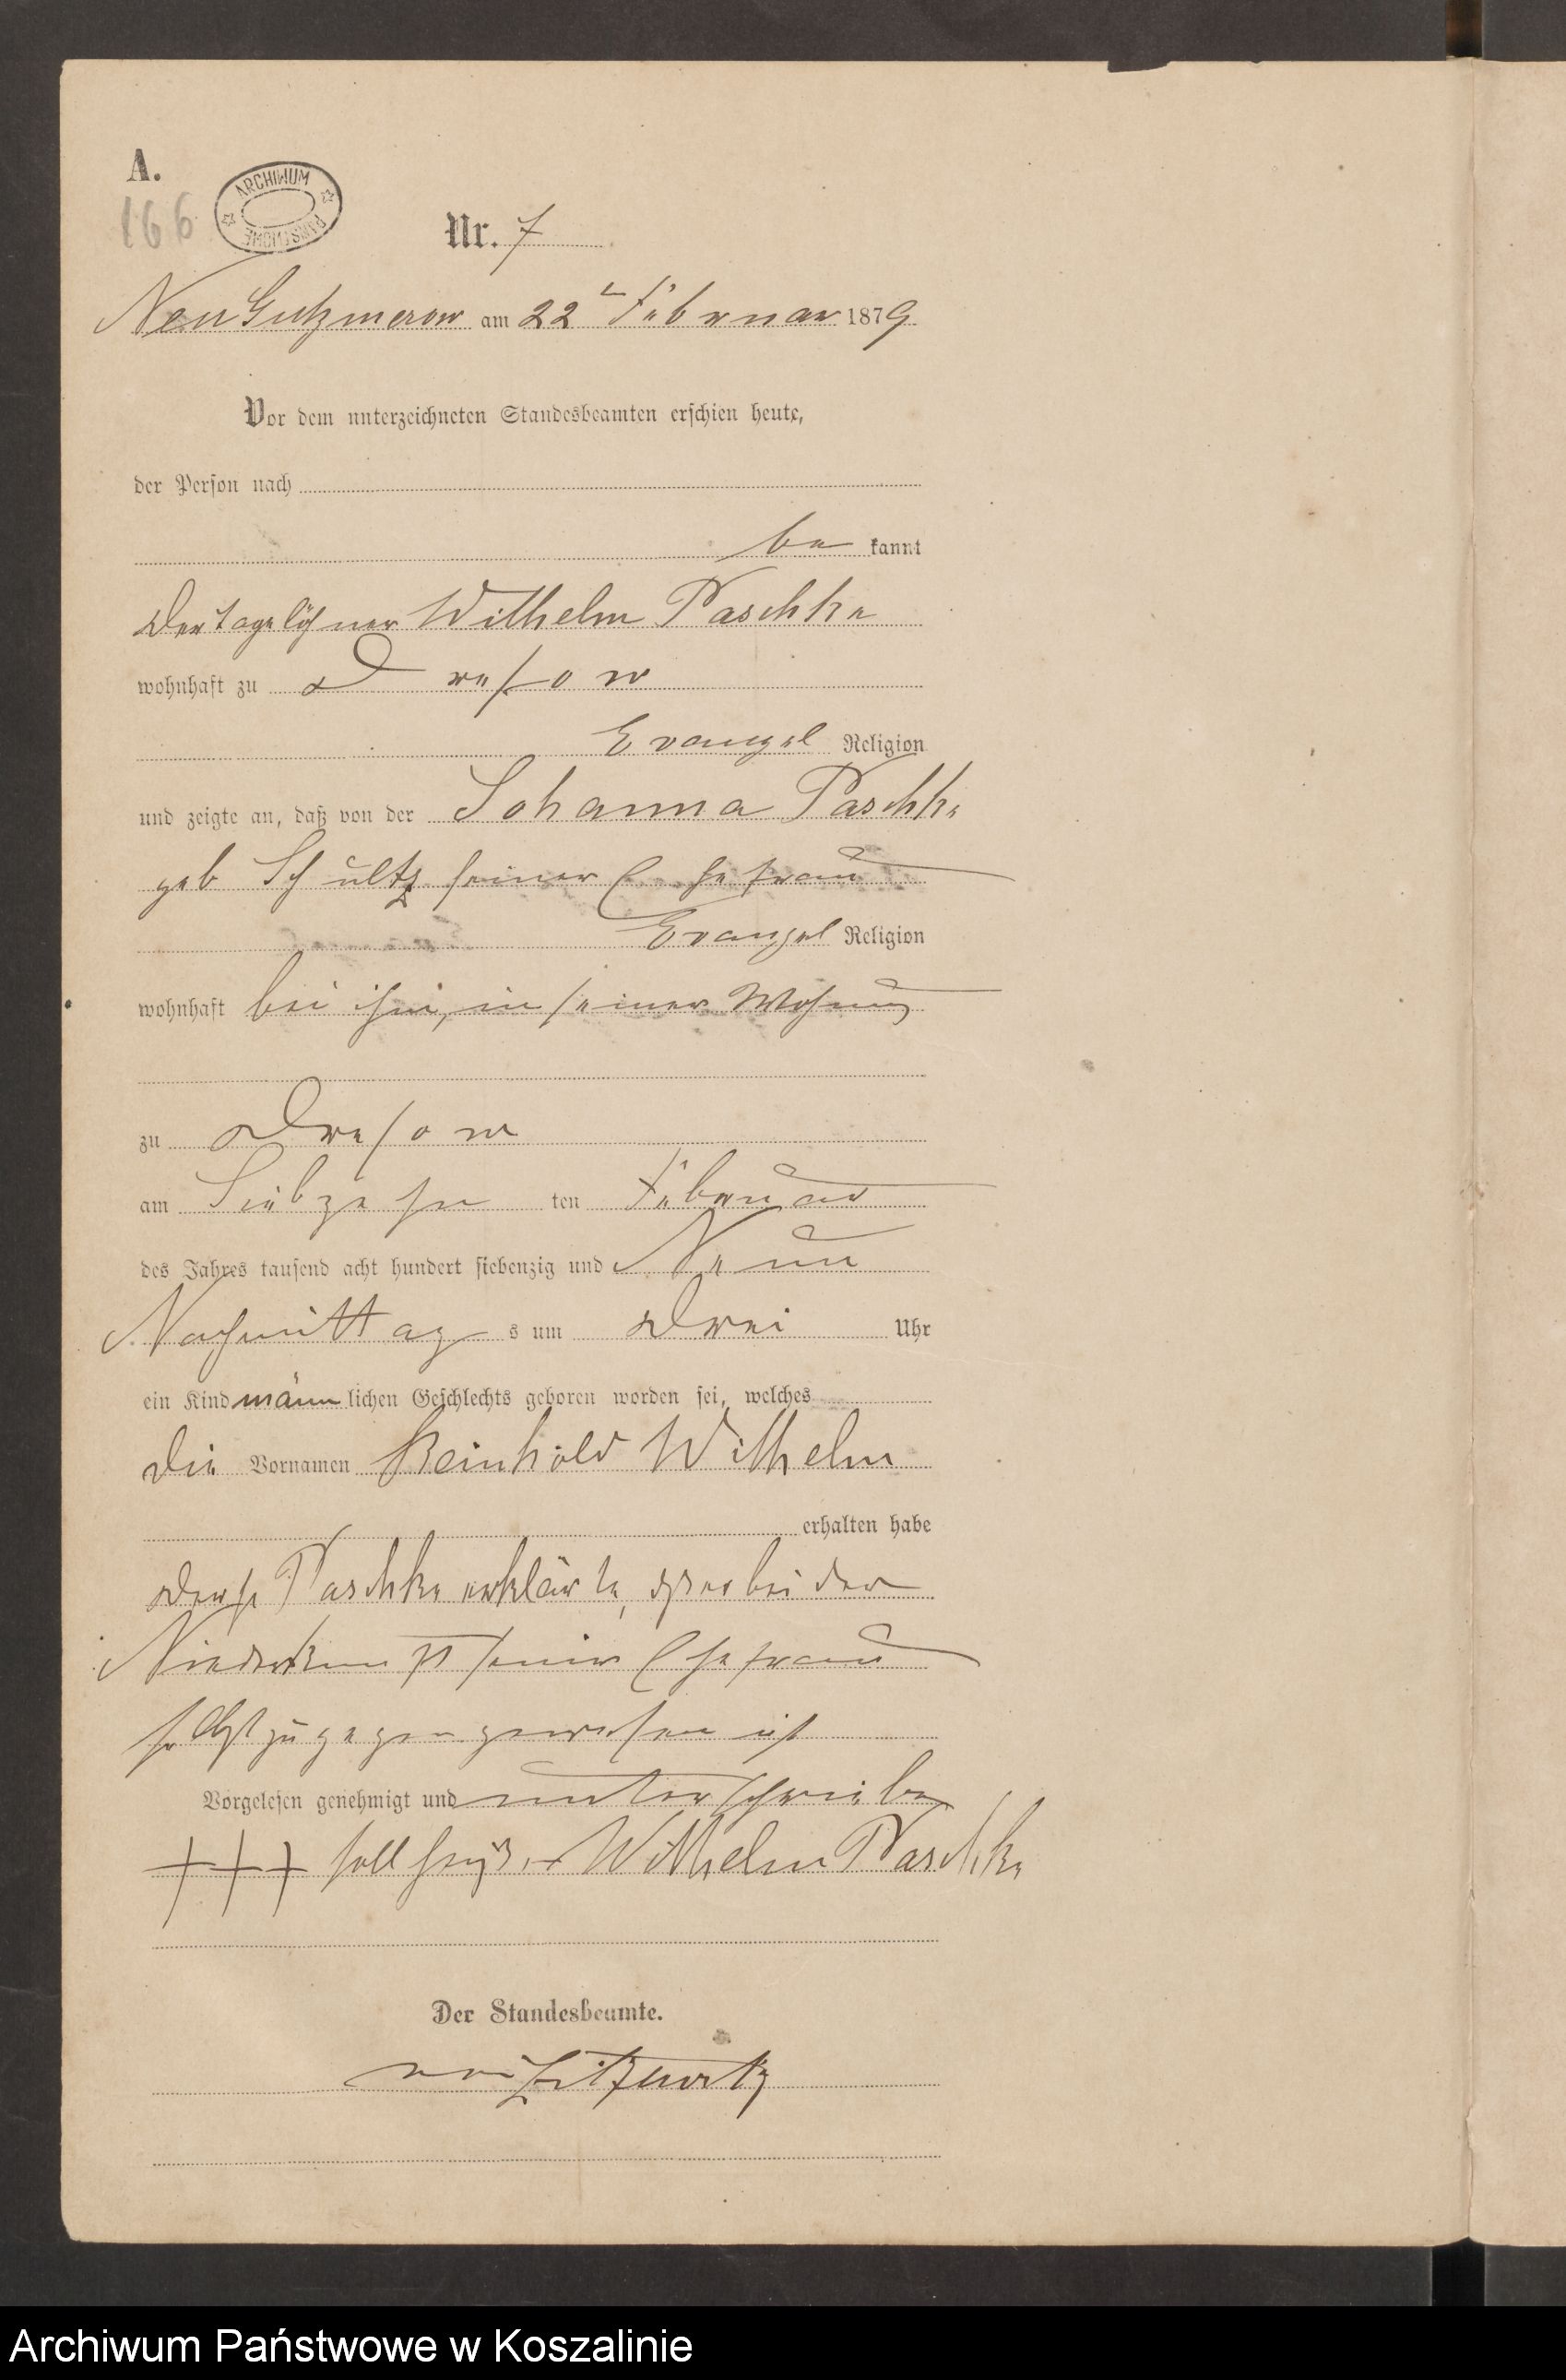 A.
166
ARCHIWUM PAŃSTWOWE
Nr. 7
Neu Gutzmerow am 22ten Februar 1879
Vor dem unterzeichneten Standesbeamten erschien heute,
der Person nach
be kannt
Der Tagelöhner Wilhelm Paschke
wohnhaft zu Dresow
Evangel Religion
und zeigte an, daß von der Johanna Paschke
geb Schultz seiner Ehefrau
Evangel Religion
wohnhaft bei ihm, in seiner Wohnung
zu Dresow
am Siebzehn ten Februar
des Jahres tausend acht hundert siebenzig und Neun
Nachmittag s um Drei Uhr
ein Kind männ lichen Geschlechts geboren worden sei, welches
die Vornamen Reinhold Wilhelm
erhalten habe
Paschke erklärte, er bei der
Niederkunft seiner Ehefrau
selbst zugegen gewesen ist
Vorgelesen genehmigt und unterschrieben
+++ soll heißen Wilhelm Paschke
Der Standesbeamte.
von Zitzewitz
Archiwum Państwowe w Koszalinie